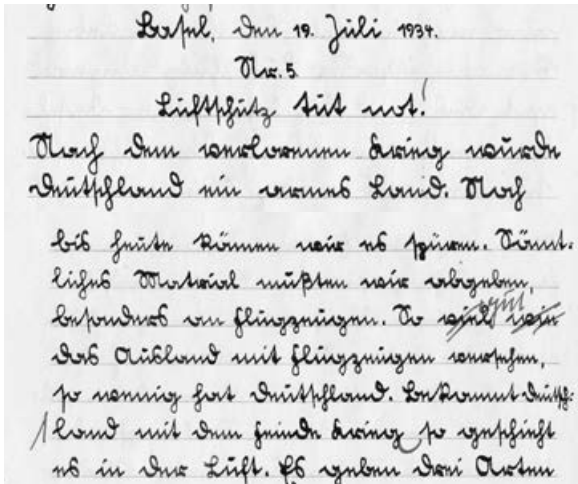 Basel, den 19. Juli 1934.
Nr. 5
Luftschutz tut not!
Nach dem verlorenen Krieg wurde
Deutschland ein armes Land. Noch
bis heute kömen wir es spüren. Sämt-
liches Matrial mußten wir abgeben,
besonders an Flugzeugen. So viel wie gut
das Ausland mit Flugzeugen versehen,
so wenig hat Deutschland. Bekommt Deutsch-
land mit dem Feinde Krieg so geschieht
es in der Luft. Es geben drei Arten